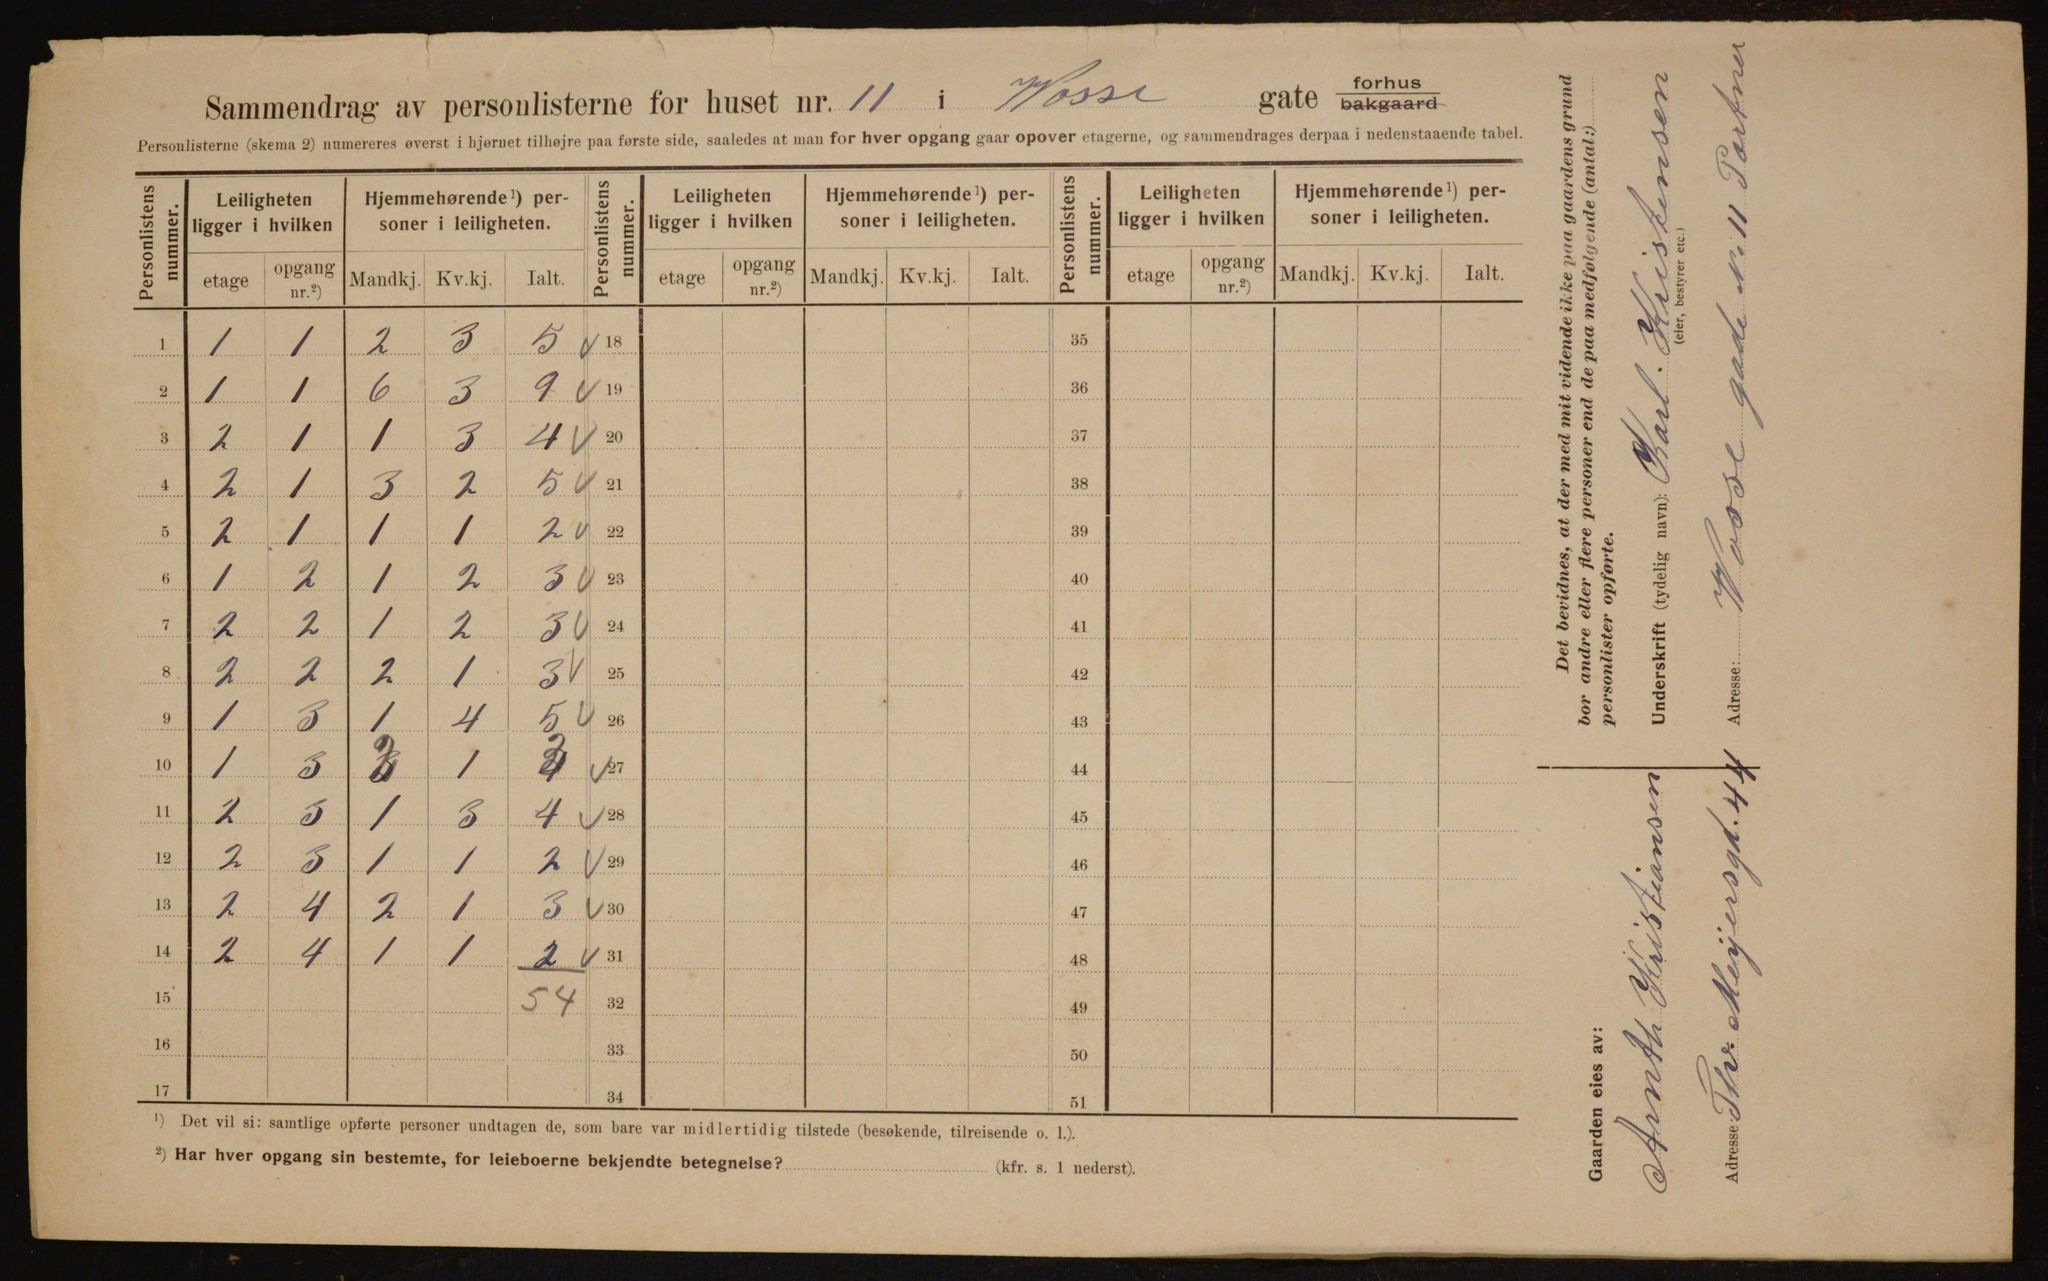 Sammendrag av personlisterne for huset nr. 11 i Vosse gate forhus
bakgaard
Personlisterne (skema 2) numereres øverst i hjørnet tilhøjre paa første side, saaledes at man for hver opgang gaar opover etagerne, og sammendrages derpaa i nedenstaaende tabel.
Personlistens nummer. Leiligheten ligger i hvilken Hjemmehørende¹) personer i leiligheten. Personlistens nummer. Leiligheten ligger i hvilken Hjemmehørende¹) personer i leiligheten. Personlistens nummer. Leiligheten ligger i hvilken Hjemmehørende¹) personer i leiligheten.
etage opgang nr.²) Mandkj. Kv.kj. Ialt. etage opgang nr.²) Mandkj. Kv.kj. Ialt. etage opgang nr.²) Mandkj. Kv.kj. Ialt.
1 1 1 2 3 5 √ 18 35
2 1 1 6 3 9 √ 19 36
3 2 1 1 3 4 √ 20 37
4 2 1 3 2 5 √ 21 38
5 2 1 1 1 2 √ 22 39
6 1 2 1 2 3 √ 23 40
7 2 2 1 2 3 √ 24 41
8 2 2 2 1 3 √ 25 42
9 1 3 1 4 5 √ 26 43
10 1 3 1 √ 27 44
11 2 3 1 3 4 √ 28 45
12 2 3 1 1 2 √ 29 46
13 2 4 2 1 3 √ 30 47
14 2 4 1 1 2 √ 31 48
15 54 32 49
16 33 50
17 34 51
¹) Det vil si: samtlige opførte personer undtagen de, som bare var midlertidig tilstede (besøkende, tilreisende o. l.).
²) Har hver opgang sin bestemte, for leieboerne bekjendte betegnelse? (kfr. s. 1 nederst).
Det bevidnes, at der med mit vidende ikke paa gaardens grund
bor andre eller flere personer end de paa medfølgende (antal:)
personlister opførte.
Underskrift (tydelig navn): Karl. Kristensen
(eier, bestyrer etc.)
Adresse: Vosse gade No 11 Portner
Gaarden eies av:
Arnth Kristiansen
Adresse: Thv. Meijersgd. 44